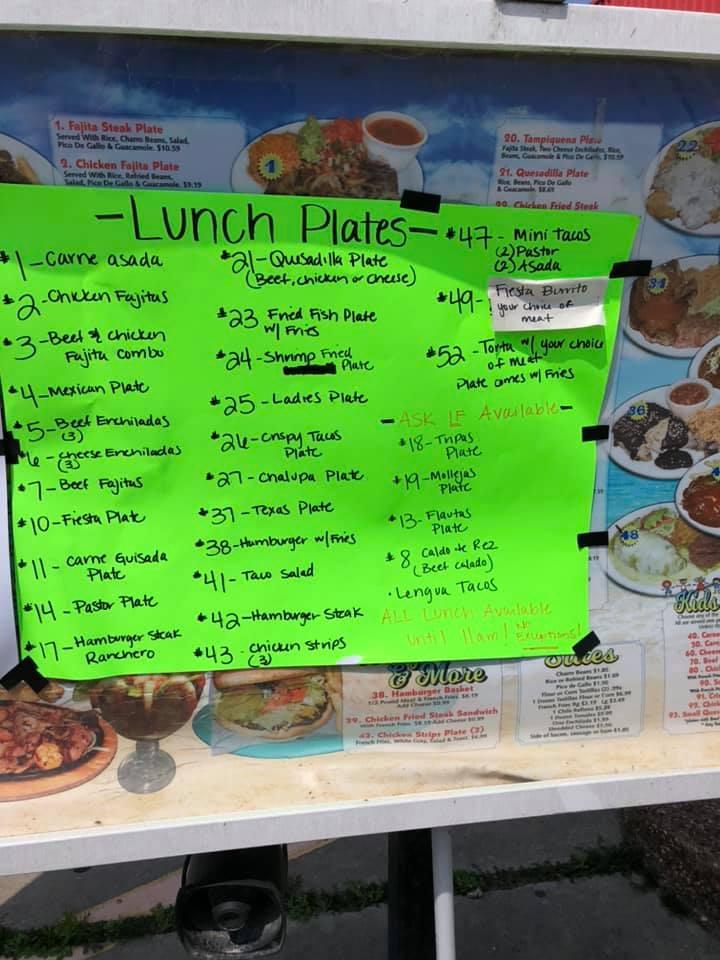 1. Fajita Steak Plate
Served With Rice, Charro Beans, Salad,
Pico De Gallo & Guacamole. $10.59
2. Chicken Fajita Plate
Served With Rice, Refried Beans,
Salad, Pico De Gallo & Guacamole. $9.19
1
20. Tampiquena Plate
Fajita Steak, Two Cheese Enchiladas, Rice,
Beans, Guacamole & Pico De Gallo, $10.59
21. Quesadilla Plate
Rice, Beans, Pico De Gallo
& Guacamole. $8.69
22. Chicken Fried Steak
22
-Lunch Plates-
#1-Carne asada
#2-Chicken Fajitas
#3-Beef & chicken
Fajita combo
#4-Mexican Plate
#5-Beef Enchiladas
(3)
#6-cheese Enchiladas
(3)
#7-Beef Fajitas
#10-Fiesta Plate
#11-Carne Guisada
Plate
#14-Pastor Plate
#17-Hamburger Steak
Ranchero
#21-Qusadilla Plate
(Beef, chicken or cheese)
#23 Fried Fish Plate
w/ Fries
#24-Shrimp Fried
Plate
#25-Ladies Plate
#26-Crispy Tacos
Plate
#27-Chalupa Plate
#37-Texas Plate
#38-Hamburger w/Fries
#41-Taco Salad
#42-Hamburger Steak
#43-chicken strips
(3)
#47-Mini Tacos
(2)Pastor
(2)Asada
#49-Fiesta Burrito
your choice of
meat
#52-Torta w/ your choice
of meat
Plate comes w/ Fries
-ASK IF Available-
#18-Tripas
Plate
#19-Mollejas
Plate
#13-Flautas
Plate
#8 Caldo de Rez
(Beef Calado)
•Lengua Tacos
ALL Lunch Available
until 11am! No
Exceptions!
31
36
48
& More
38. Hamburger Basket
1/2 Pound Meat & French Fries. $8.19
Add Cheese $0.99
39. Chicken Fried Steak Sandwich
With French Fries. $8.19 Add Cheese $0.99
43. Chicken Strips Plate (3)
French Fries, White Gravy, Salad & Toast. $8.99
Sides
Charro Beans $1.85
Rice or Refried Beans $1.89
Pico de Gallo $1.90
Kids